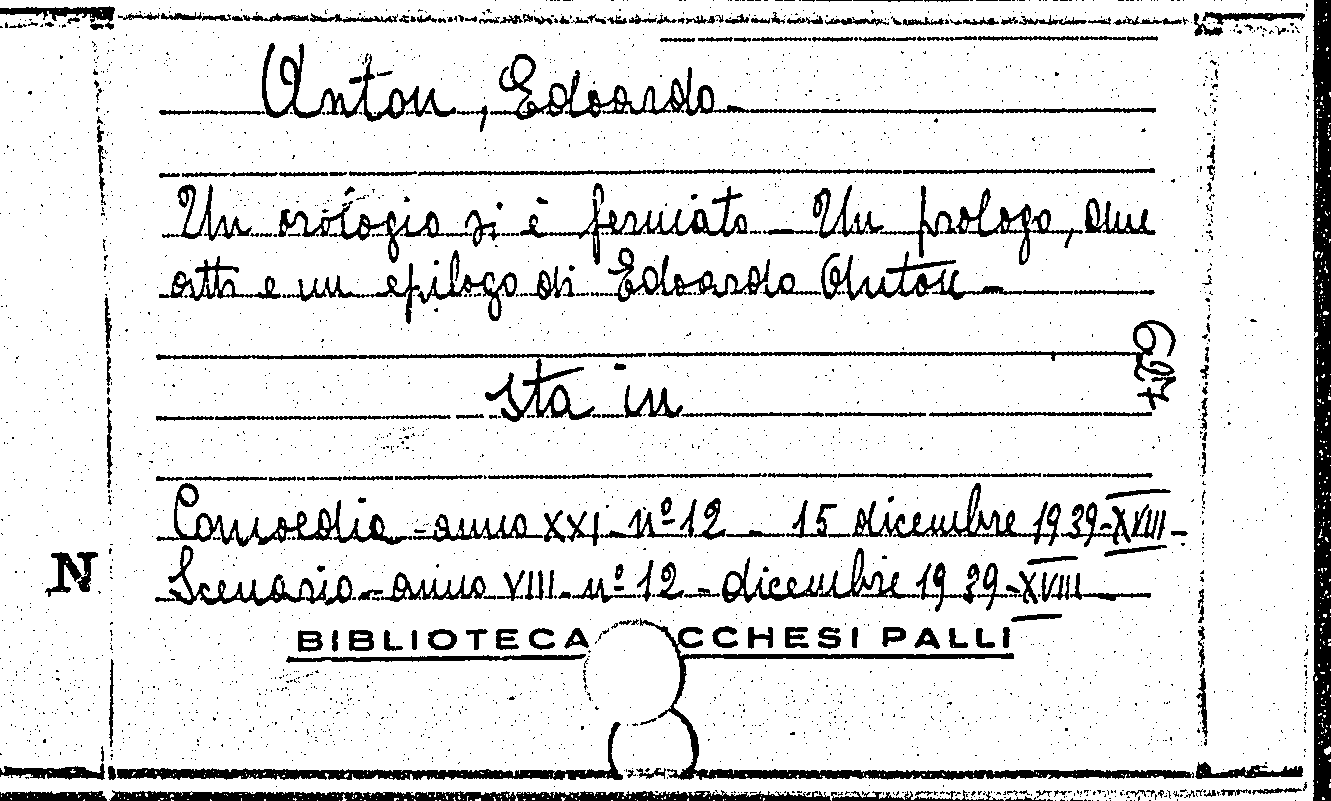 Anton, Edoardo-
Un orologio si è fermato - Un prologo, due
atti e un epilogo di Edoardo Anton -
627
sta in
Comoedia - anno XXI - nº 12 - 15 dicembre 1939 - XVIII -
N
Scenario - anno VIII - nº 12 - dicembre 1939 - XVIII -
BIBLIOTECA CCHESI PALLI